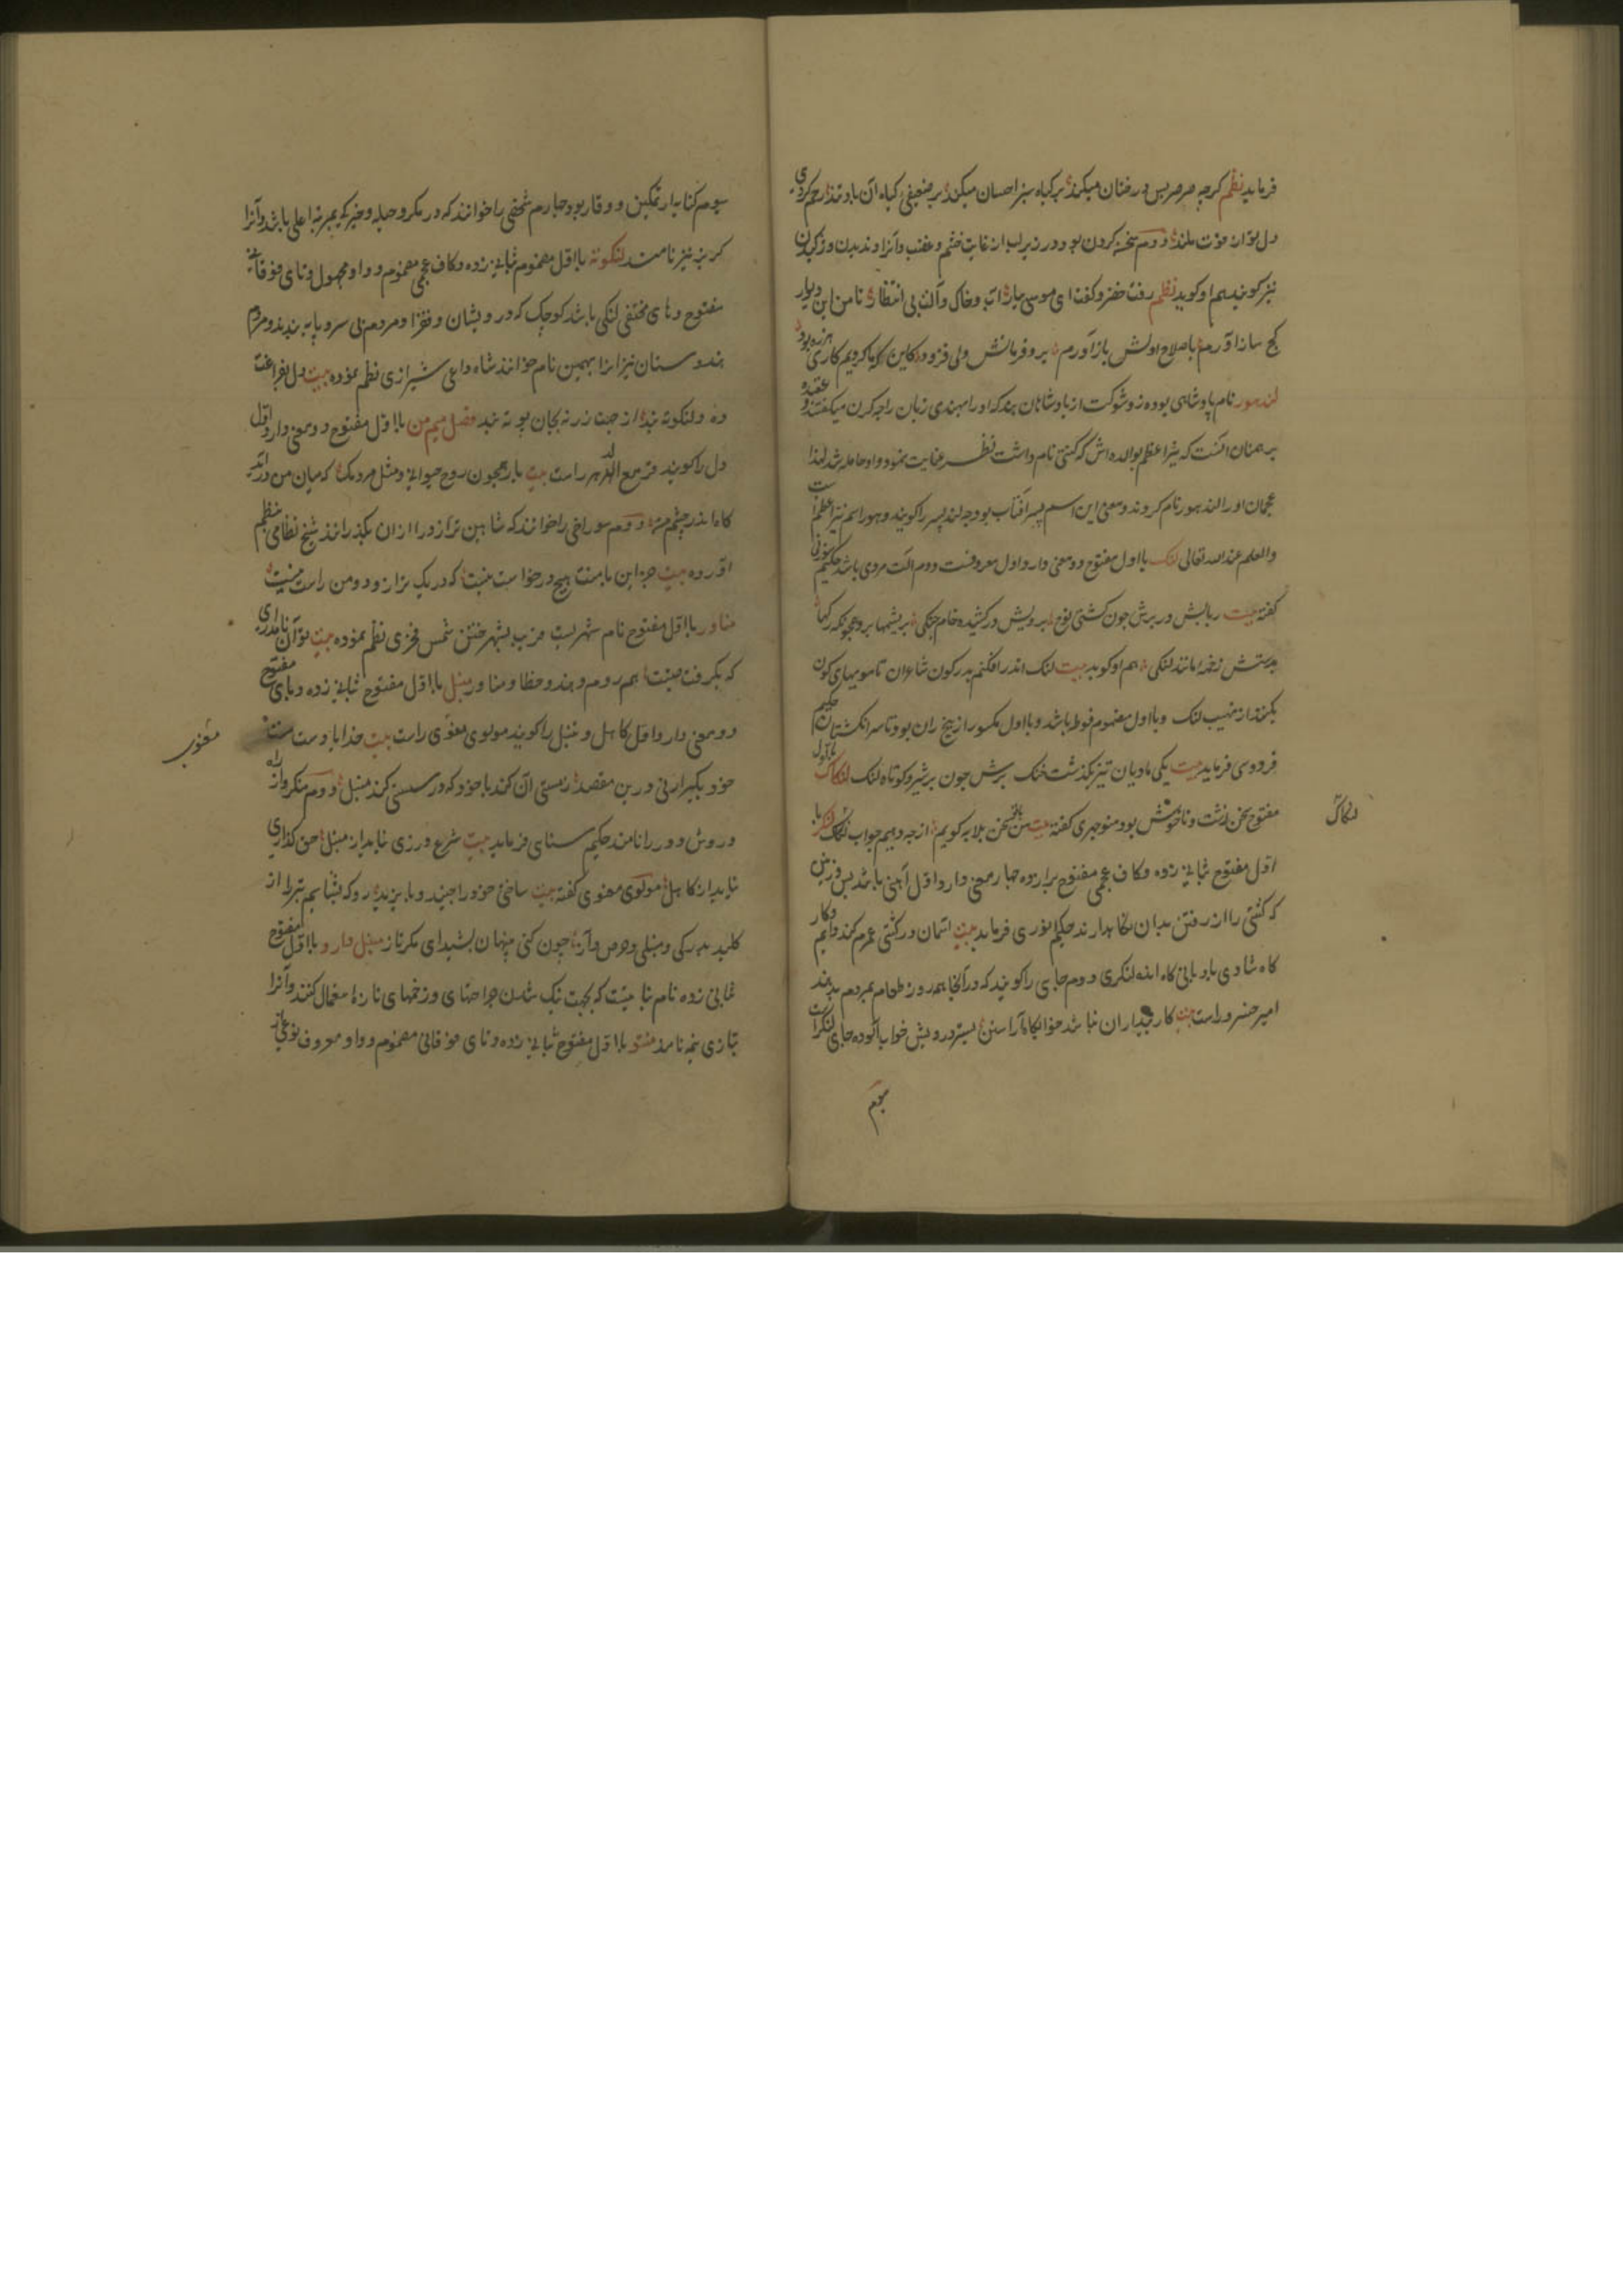 فرماید نظم کرچه صرصر بس درختان میکند بر کیاه سبز احسان میکند بر ضعیفی کیاه آن باد تند رحم کرد ای
دل تو از قوت ملند دوم سخن کردن بود در زیر لب از غایت خشم و غضب و آنرا دندیدن و ژکیدن
نیز کویند هم او کوید نظم رفت خضر و کفت ای موسی بیار آب و خاک و آلت بی انتظار تا من این دیوار
کج سازآورم باصلاح اولش بازآورم برد فرمانش ولی فزود کاین که ما کردیم کاری هرزه بود
لندهور نام پادشاهی بوده ذو شوکت از پادشاهان هند که او را بهندی زبان راجه کرن میکفتند و عقیده
برهمنان آنست که نیر اعظم بوالده اش که کنتی نام داشت نظر عنایت نمود و او حامله شد لهذا
عجمان او را لندهور نام کردند و معنی این اسم پسر آفتاب بود چه لند پسر را کویند و هور اسم نیر اعظم است
والعلم عند الله تعالی لنک با اول مفتوح دو معنی دارد اول معروفست و دوم آلت مردی باشد حکیم سوزنی
کفته بیت ربابش در برش چون کشتی نوح برویش درکشیده خام چنکی بریشمها برو همچونکه رکها
بدستش زخمه مانند لنکی هم او کوید بیت لنک اندر افکنم بدر کون شاعران تا مویهای کون
بکند از نهیب لنک و با اول مضموم فوطه باشد و با اول مکسور از بیخ ران بود تا سر انکشتان پا حکیم
فردوسی فرماید بیت یکی مادیان تیز بگذشت خنک برش چون بر شیر و کوتاه لنک لنکاک با اول
مفتوح سخن زشت و ناخوش بود منوچهری کفته بیت من سخن بلابه کویم از چه دهیم جواب لنکاک لنکر با
اول مفتوح بثانی زده و کاف عجمی مفتوح برا زده چهار معنی دارد اول آهنی باشد بس وزین
که کشتی را از رفتن بدان نکاه دارند حکیم انوری فرماید بیت آسمان در کشتی عمرم کند دایم دو کار
کاه شادی بادبانی کاه انده لنکری دوم جای را کویند که در آنجا همه روز طعام بمردم بدهند
امیر خسرو راست بیت کار بیداران نباشد خوابکاه آراستن بستر درویش خواب آلوده جای لنکر است
لنکاک
سوم کنایه از تمکین و وقار بود چهارم شخصی را خوانند که در مکر و حیله و خیرکی بمرتبه اعلی باشد و آنرا
کربز نیز نامند لنکوته با اول مضموم بثانی زده و کاف عجمی مضموم و واو مجهول و تای فوقانی
مفتوح و های مختفی لنکی باشد کوچک که درویشان و فقرا و مردم بی سر و پا بر بندند و مردم
هندوستان نیز آنرا بهمین نام خوانند شاه داعی شیرازی نظم نموده بیت دل بفراغت
ده و لنکوته بند از جهت زر نه بجان بوته بند فصل میم من با اول مفتوح دو معنی دارد اول
دل را کویند فریع الدهر راست بیت یا رب چون روح حیوانی و مثل مردمک که میان من درآید
کاه اندر چشم من دوم سوراخی را خوانند که شاهین ترازو را از آن بکذرانند شیخ نظامی نظم
آورده بیت جو این با منت هیچ درخواست نیست که در یک ترازو دو من راست نیست
مناور با اول مفتوح نام شهریست قریب بشهر ختن شمس فخری نظم نموده بیت تو آن نامداری
که بکرفت صیتت هم روم و هند و خطا و مناور منبل با اول مفتوح بثانی زده و بای مفتوح
دو معنی دارد اول کاهل و تنبل را کویند مولوی معنوی راست بیت خدایا دست مست
خود بکیر ارنی درین مقصد ز مستی آن کند با خود که در سستی کند منبل دوم منکر و از راه
و روش دور را نامند حکیم سنائی فرماید بیت شرع ورزی ناید از منبل حق کذاری
ناید از کاهل مولوی معنوی کفته بیت ساختی خود را جنید و بایزید رو که نشناسم تبر را از
کلید بدرکی و منبلی و حرص و آز چون کنی پنهان بشید ای مکرناز منبل دارو با اول مفتوح
ثانی زده نام نباتیست که بجهت نیک شدن جراحتهای و زخمهای تازه استعمال کنند و آنرا
بتازی نیز نامند منتو با اول مفتوح بثانی زده و تای فوقانی مضموم و واو معروف نوعی از
معنوی